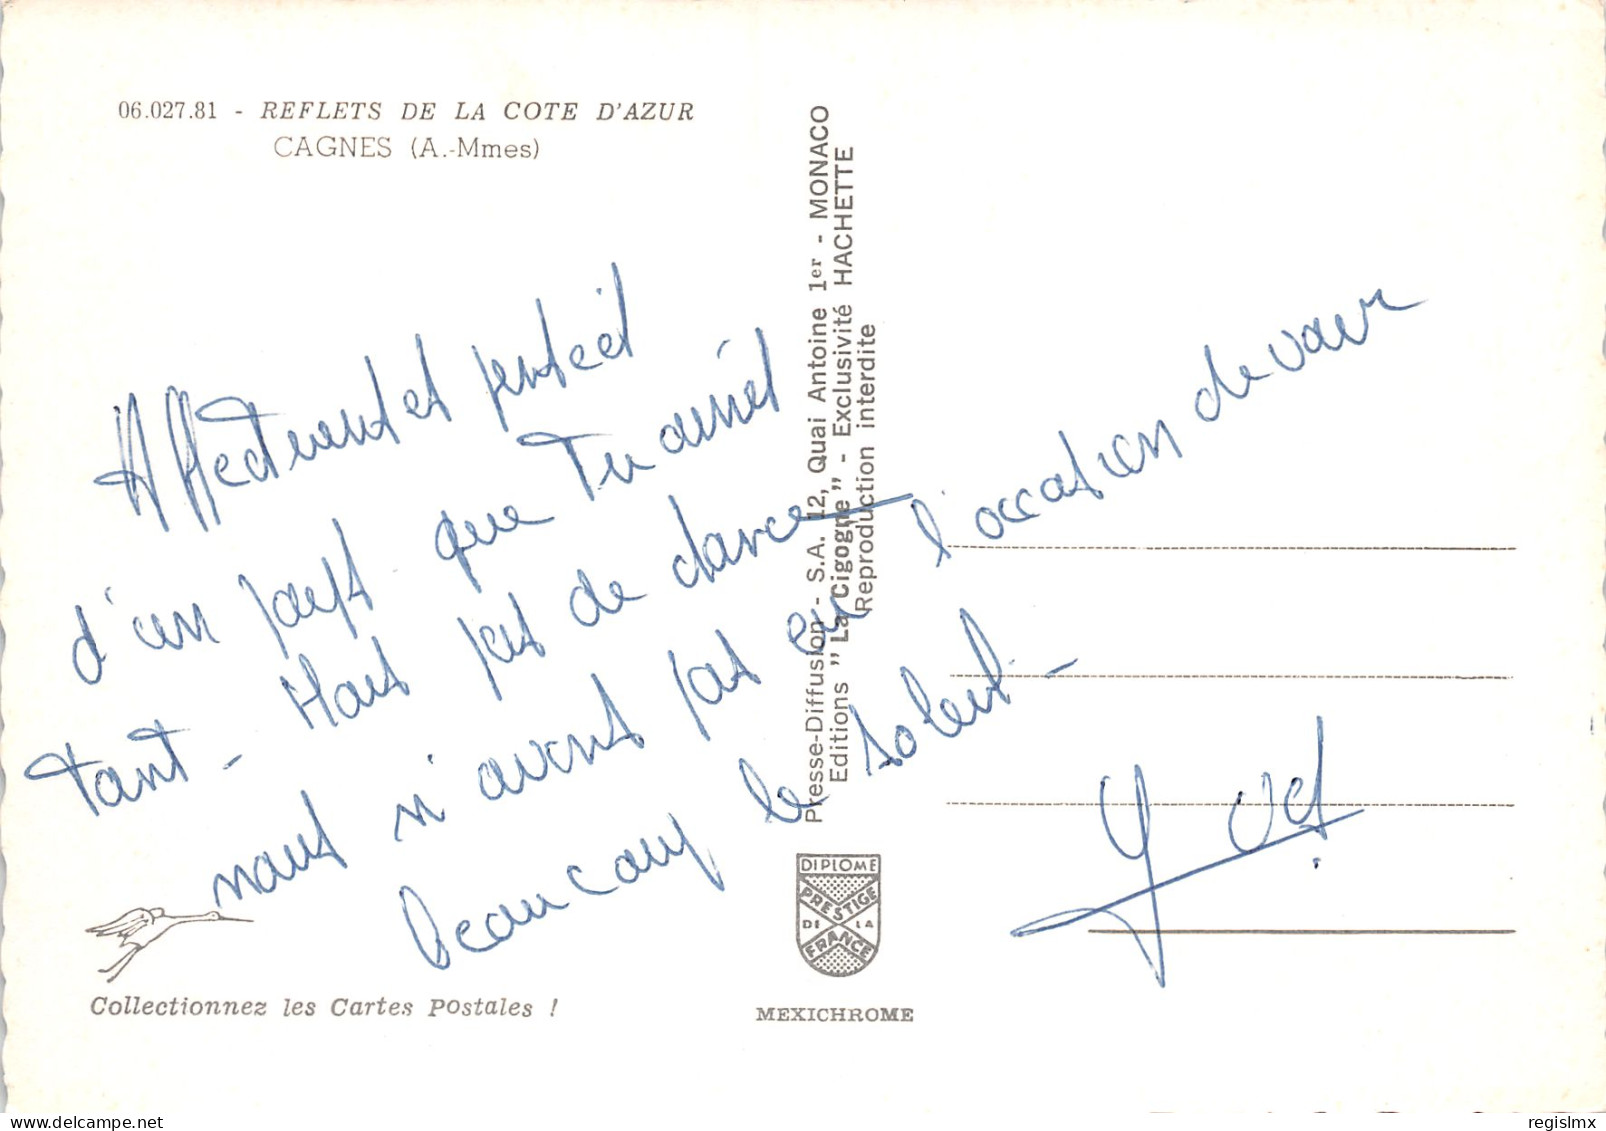 06.027.81 - REFLETS DE LA COTE D'AZUR
CAGNES (A.-Mmes)
Affectueuses pensées
d'un pays que Tu aimes
tant - Mais pas de chance
nous n'avons pas eu l'occasion de voir
beaucoup le soleil -
Presse-Diffusion - S.A. 12, Quai Antoine 1er - MONACO
Editions "La Cigogne" - Exclusivité HACHETTE
Reproduction interdite
DIPLOME
PRESTIGE
DE LA
FRANCE
Collectionnez les Cartes Postales !
MEXICHROME
delcampe.net
regislmx